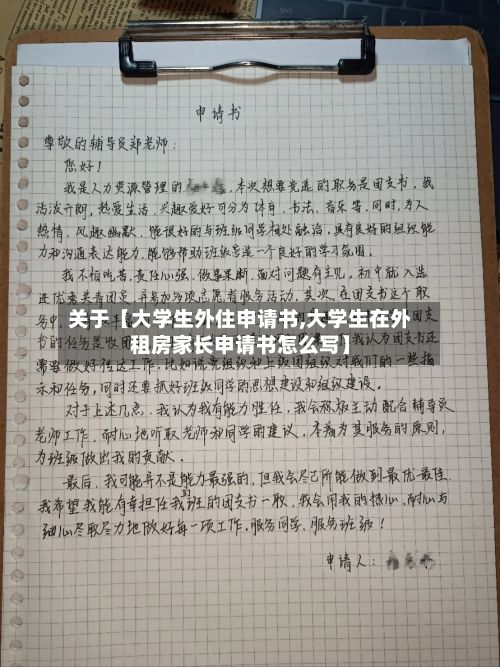 申请书
尊敬的辅导员郑老师：
您好！
我是人力资源管理的 ，本次想要竞选的职务是团支书，我
活泼开朗，热爱生活，兴趣爱好可分为体育、书法、音乐等，同时，为人
热情，风趣幽默，能很好的与班级同学相处融洽，具有良好的组织能
力和沟通表达能力，能够帮助班级营造一个良好的学习氛围。
我不怕吃苦，责任心强，做事果断，面对问题有主见。初中就入选
进优秀共青团员，并参加多项志愿者服务活动。其次，在团支书这个职
关于【大学生外住申请书,大学生在外
租房家长申请书怎么写】
需要做好传达工作，比如说党组织和上级团组织对我们的一些指
示和任务，同时还要抓好班级同学的思想建设和组织建设。
对于上述几点，我认为我有能力胜任，我会积极主动配合辅导员
老师工作，耐心地听取老师和同学的建议，本着为其服务的原则，
为班级做出我的贡献。
最后，我可能并不是能力最强的，但我会尽己所能做到最优最佳。
我希望我能有幸担任我的班的团支书一职，我会用我的恒心、耐心与
细心尽职尽力地做好每一项工作，服务同学、服务班级！
申请人：